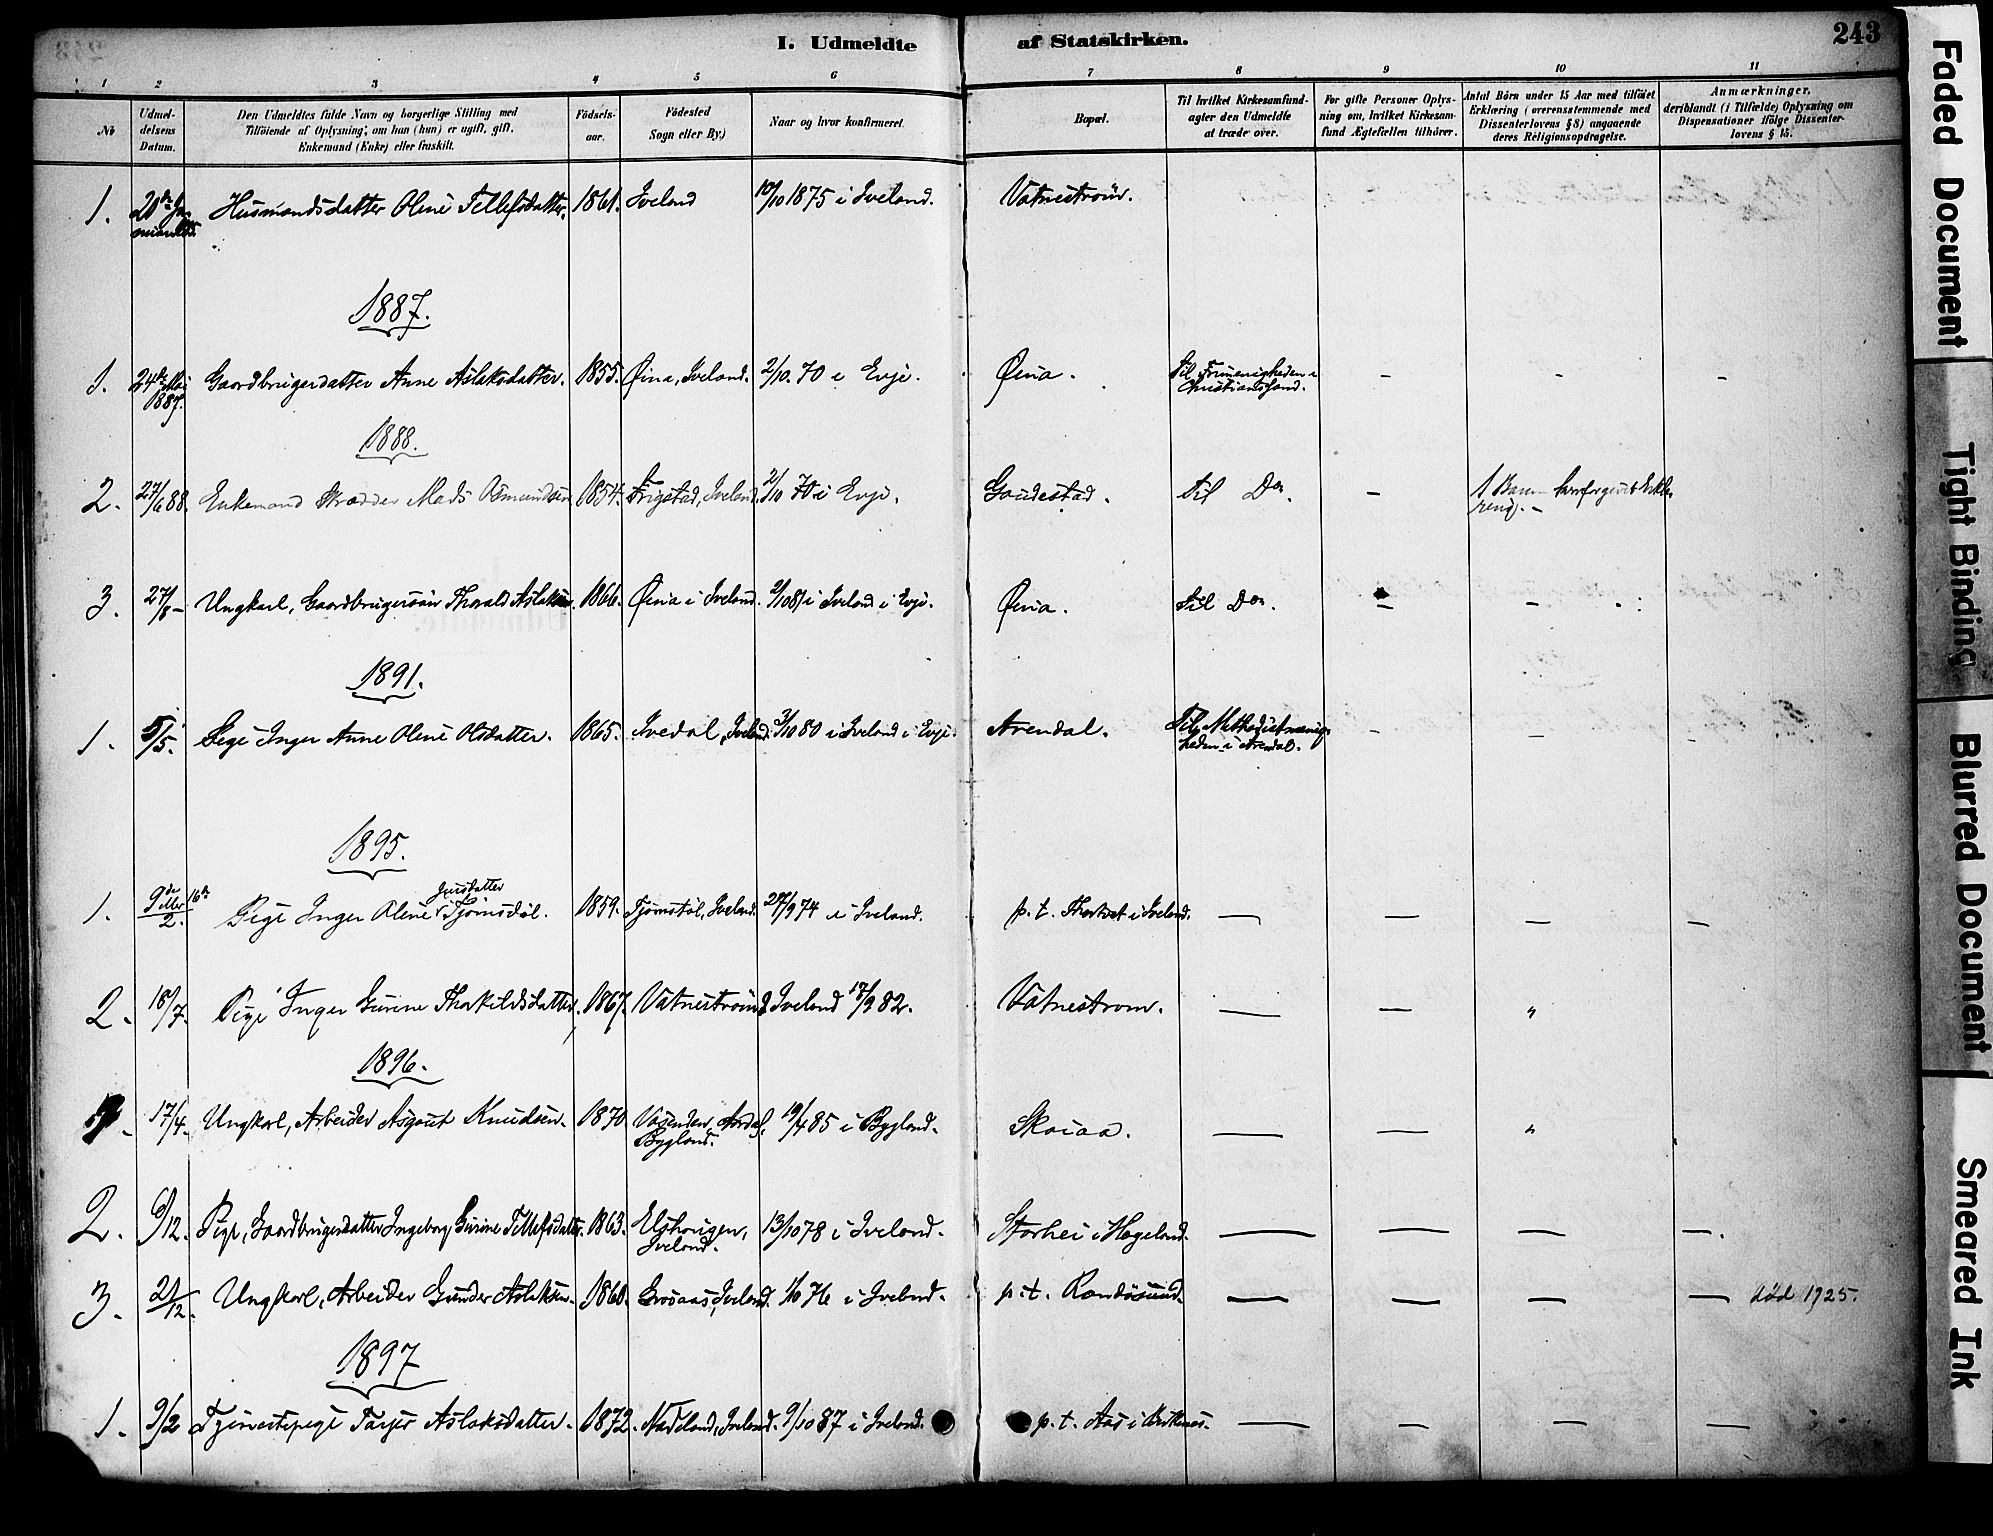 I. Udmeldte af Statskirken. 243
1 2 3 4 5 6 7 8 9 10 11
No
Udmel-
delsens
Datum.
Den Udmeldtes fulde Navn og borgerlige Stilling med
Tilföiende af Oplysning, om han (hun) er ugift, gift,
Enkemand (Enke) eller fraskilt.
Födsels-
aar.
Födested
Sogn eller By.)
Naar og hvor konfirmeret.
Bopæl.
Til hvilket Kirkesamfund-
agter den Udmeldte
at træde over.
For gifte Personer Oplys-
ning om, hvilket Kirkesam-
fund Ægtefællen tilhörer.
Antal Börn under 15 Aar med tilföiet
Erklæring (overensstemmende med
Dissenterlovens § 8) angaaende
deres Religionsopdragelse.
Anmærkninger,
deriblandt (i Tilfælde) Oplysning om
Dispensationer ifölge Dissenter-
lovens § 15.
1. Husmandsdatter Oline Tellefsdatter. 1861. Iveland 10/10 1875 i Iveland. Vatneström.
1887.
1. 24de Mai Gaardbrugerdatter Anne Aslaksdatter. 1855. Öina, Iveland. 2/10. 70 i Evje. Öina. til Frimenigheden i - - -
1887. Christianssand.
1888.
2. 27/6 88. Enkemand Skrædder Mads Osmundsen 1854. Frigstad, Iveland 2/10 70 i Evje. Gaudestad. til Do. - 1 Barn
3. 27/8 - Ungkarl, Gaardbrugersön Thorald Aslaksen 1866. Öina i Iveland. 2/10 81 i Iveland i Evje. Öina. til Do. - -
1891.
1. 5/5. Pige Inger Anne Oline Olsdatter. 1865. Ivedal, Iveland. 3/10 80 i Iveland i Evje. Arendal. Til Methodistmenig- - - -
heden i Arendal.
1895.
1. 9de 16de
2. Pige Inger Oline Tjömsdöl. 1859. Tjömstöl, Iveland. 27/9 74 i Iveland. p. t. i Iveland. - - - -
2. 18/7. Pige Inger Gurine Thorkildsdatter, 1867. Vatneström Iveland 17/9 82. Vatnestrom. - - "
1896.
17/4. Ungkarl, Arbeider Asgout Knudsen. 1870 Vasenden, Aardal, 19/4 85 i Bygland. Skaiaa. - - "
Bygland.
2. 9/12. Pige, Gaardbrugerdatter Ingeborg Gurine Tellefsdatter. 1863. 13/10 78 i Iveland. Storhei i Hægeland. - - - -.
Iveland.
3. 21/12. Ungkarl, Arbeider Gunder Aslaksen. 1860. Grosaas, Iveland. 1/10 76 i Iveland. p. t. Randösund. - - - - död 1925.
1897
1. 9/2 Tjenestepige Tarjer Aslaksdatter. 1872. Nateland, Iveland. 9/10 87 i Iveland. p. t. Aas i - - - -
Faded Document
Tight Binding
Blurred Document
Smeared Ink